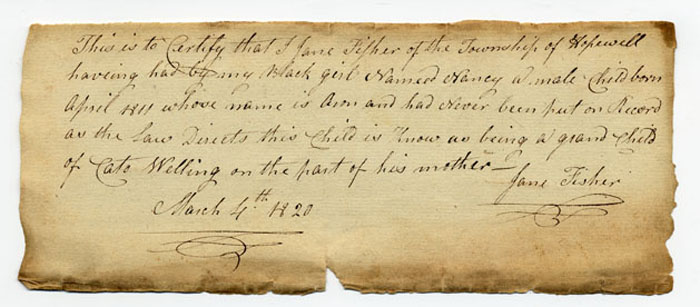 This is to Certify that I Jane Fisher of the Township of Hopewell
haveing had by my Black girl Named Nancy a male Child born
April 1811 whose name is Aron and had Never been put on Record
as the Law Directs this Child is Know as being a grand Child
of Cato Welling on the part of his mother—
Jane Fisher
March 4th 1820